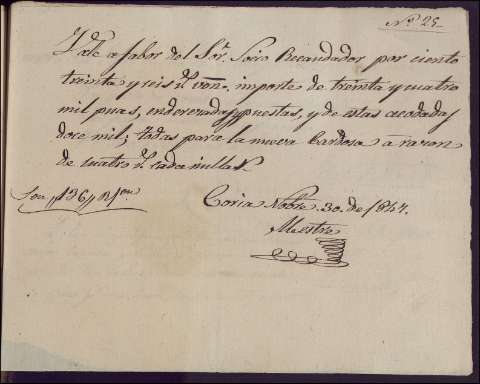 N.º 25
Vale a fabor del Sr. Soiro Recaudador por ciento
treinta y seis rs. von. importe de treinta y cuatro
mil puas, enderezadas y puestas, y de estas acodadas
doce mil; todas para la nueva Cardosa á razon
de cuatro rs. cada millar.
Son 136 rs. von.
Coria Nobre. 30. de 1847.
Mestre